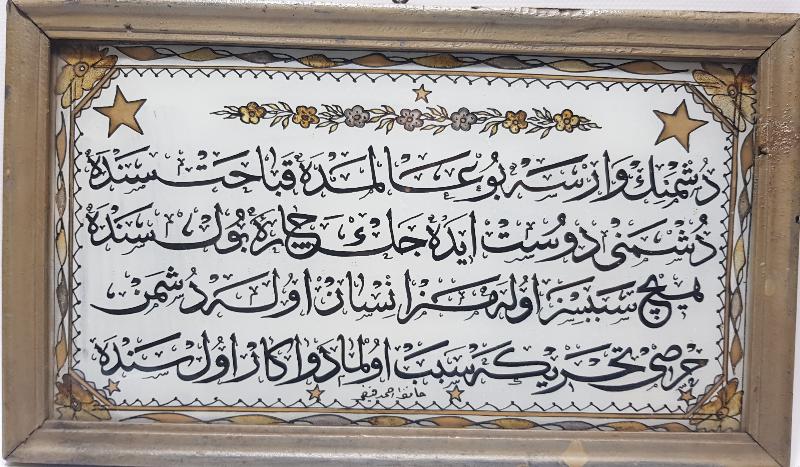 دشمنك وارسه بو عالمده قباحت سنده
دشمنی دوست ایده جك چاره بول سنده
هیچ سببسز اوله مز انسان اوله دشمن
حرصی تحریکه سبب اولما دوا کار اول سنده